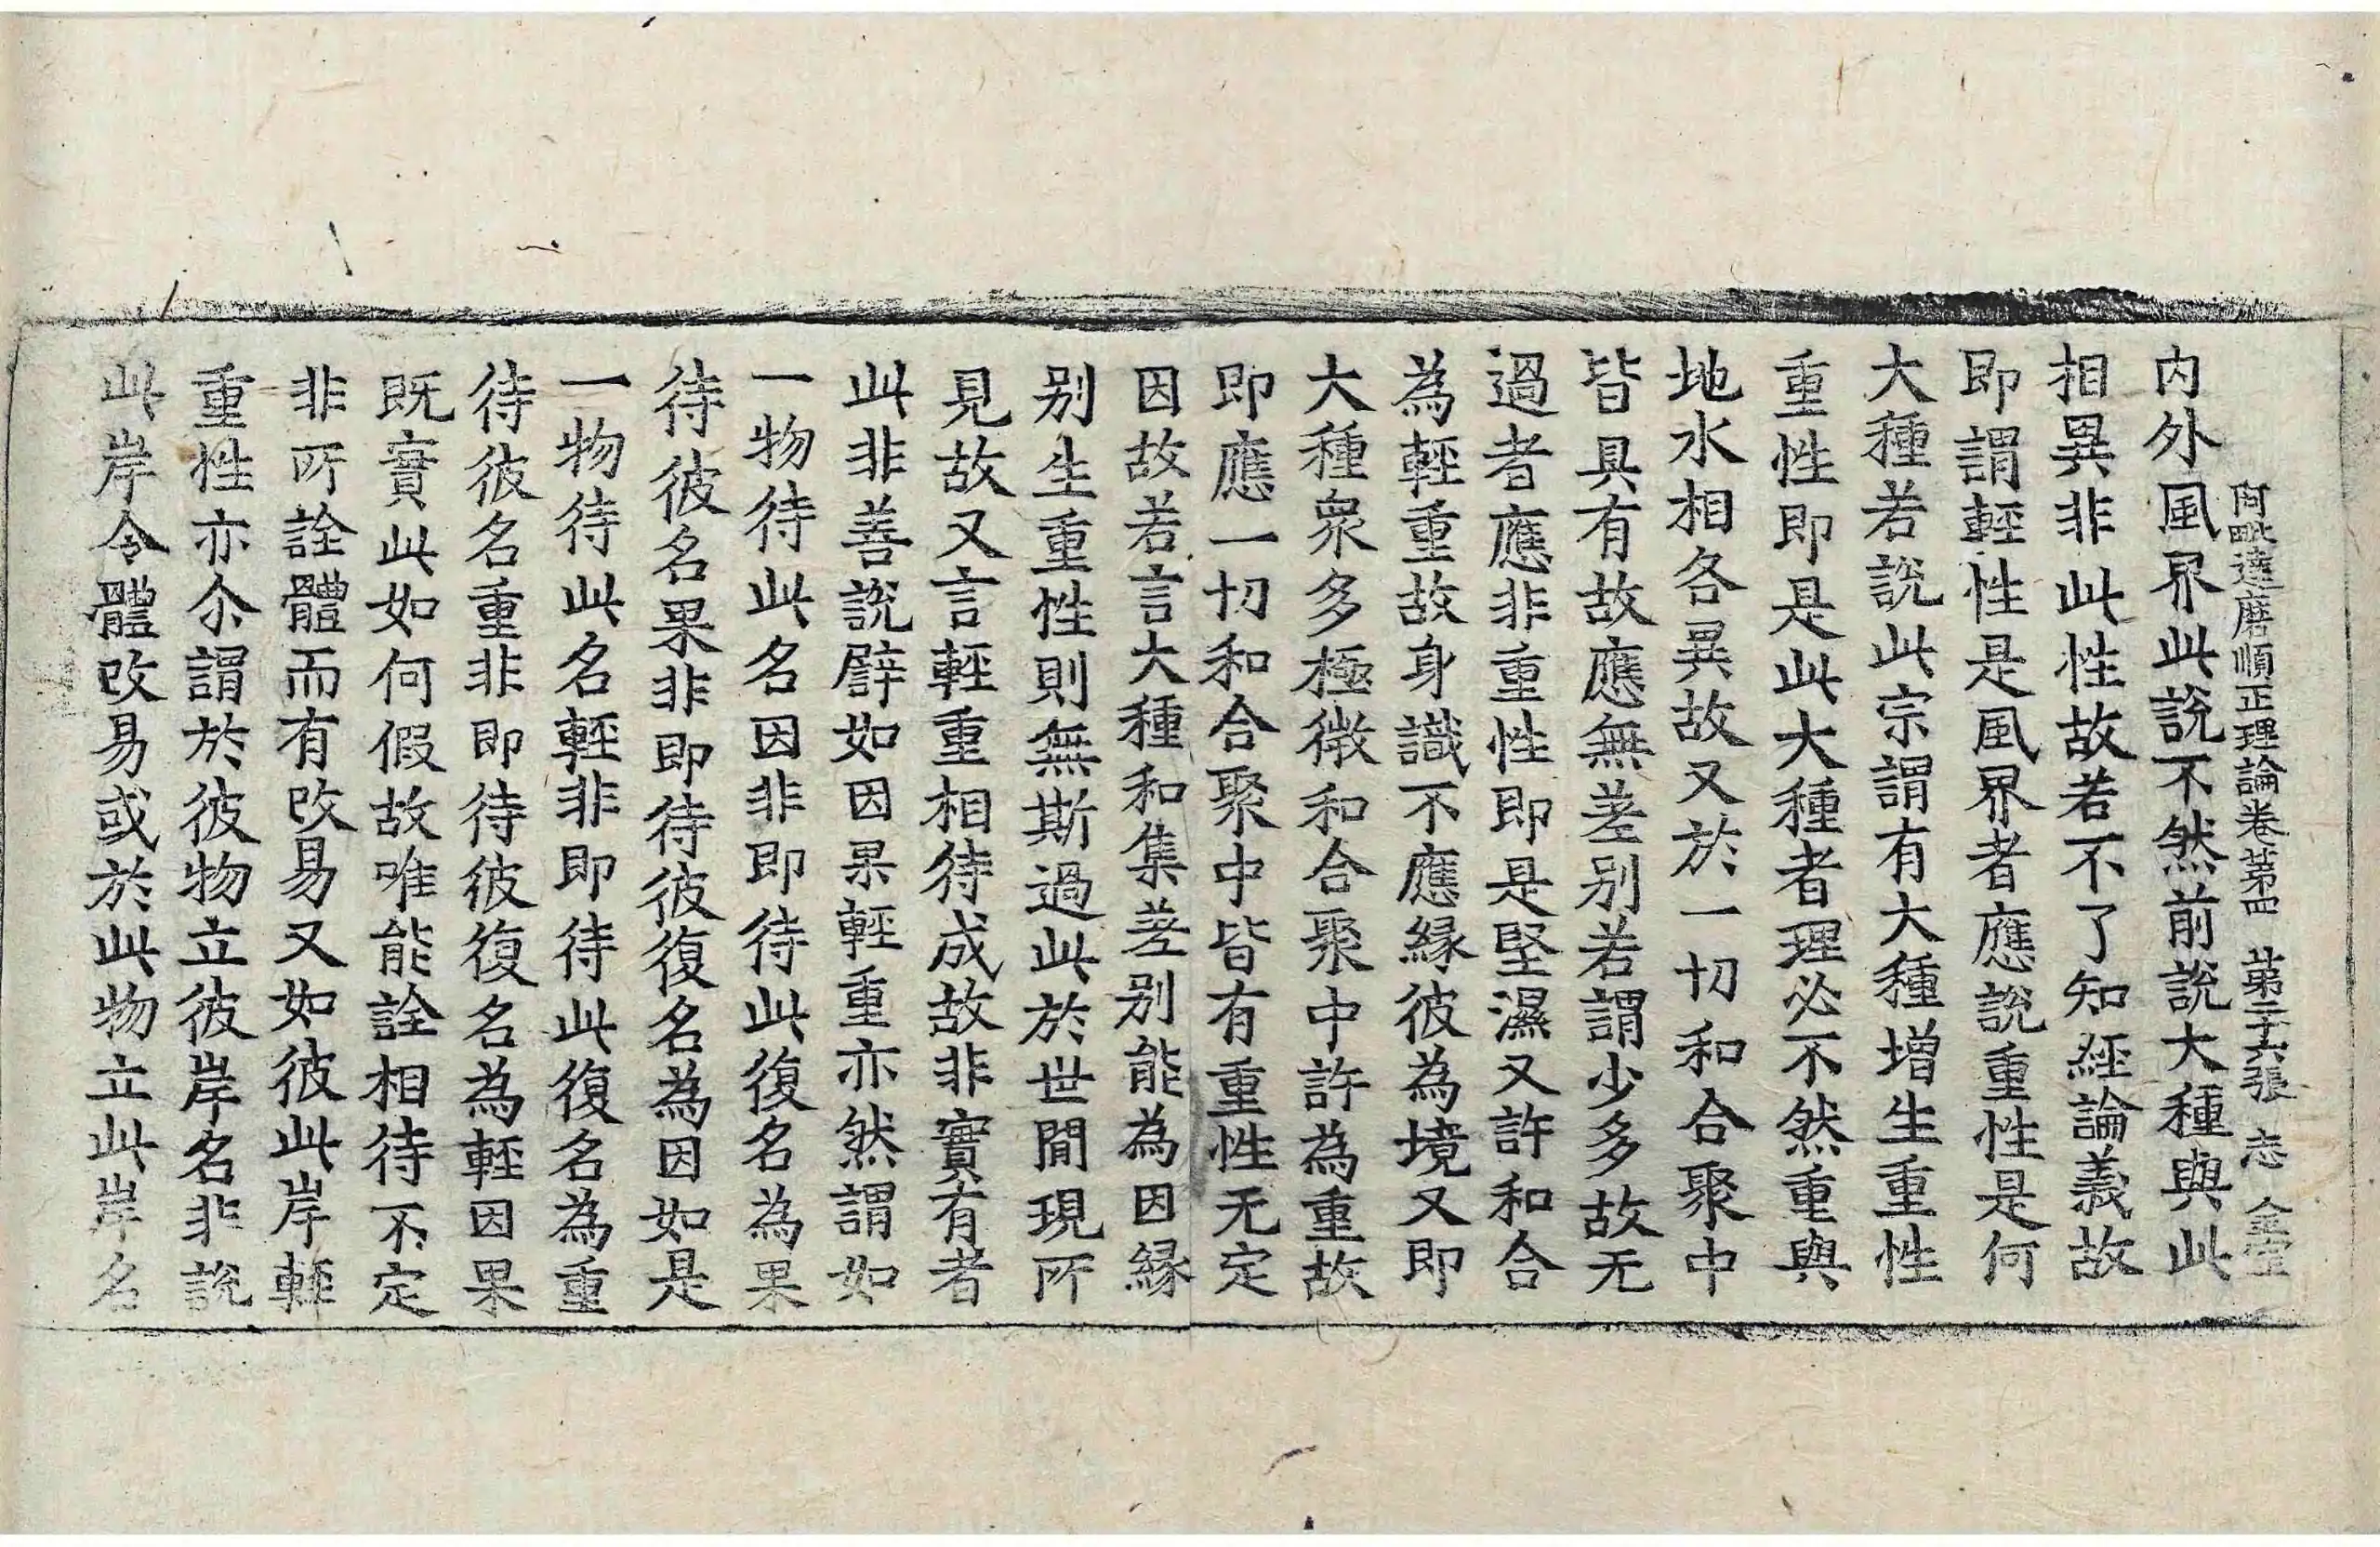 阿毗達磨順正理論卷第四　第二十六張　志
内外風界此說不然前說大種與此
相異非此性故若不了知經論義故
即謂輕性是風界者應說重性是何
大種若說此宗謂有大種增生重性
重性即是此大種者理必不然重與
地水相各異故又於一切和合聚中
皆具有故應無差別若謂少多故无
過者應非重性即是堅濕又許和合
為輕重故身識不應緣彼為境又即
大種衆多極微和合聚中許為重故
即應一切和合聚中皆有重性无定
因故若言大種和集差別能為因緣
別生重性則無斯過此於世間現所
見故又言輕重相待成故非實有者
此非善說譬如因果輕重亦然謂如
一物待此名因非即待此復名為果
待彼名果非即待彼復名為因如是
一物待此名輕非即待此復名為重
待彼名重非即待彼復名為輕因果
既實此如何假故唯能詮相待不定
非所詮體而有改易又如彼此岸輕
重性亦尒謂於彼物立彼岸名非說
此岸令體改易或於此物立此岸名